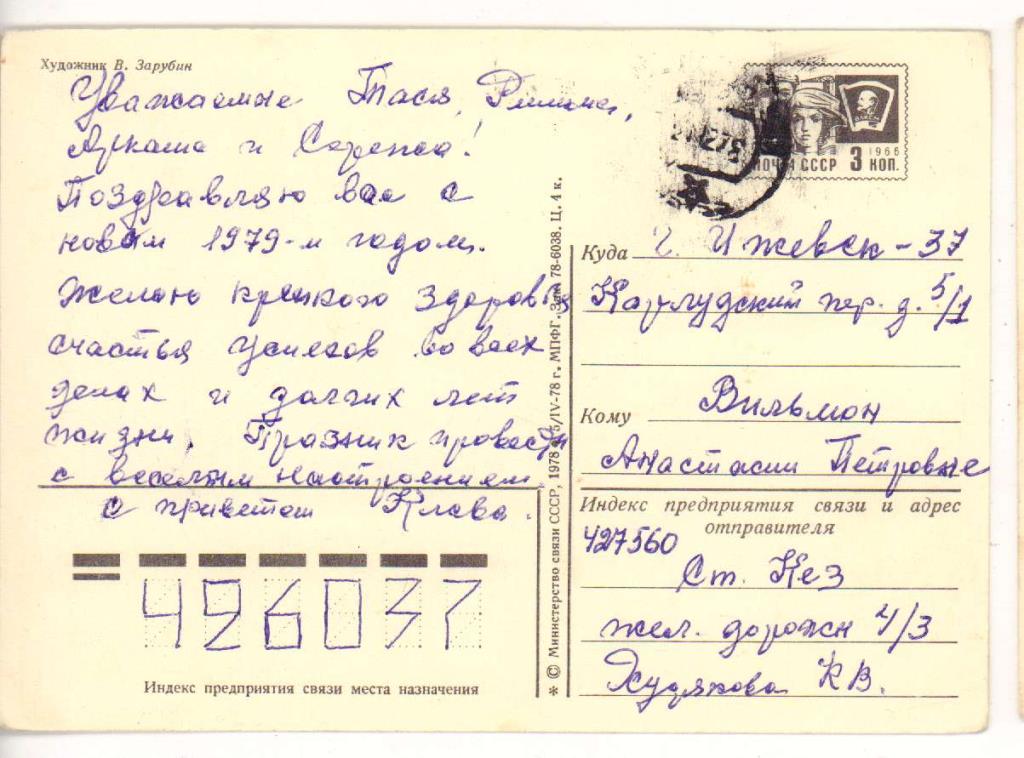 Художник В. Зарубин
Уважаемые Тася, Римма,
Аркаша и Сережа!
Поздравляю вас с
новым 1979-м годом.
Желаю крепкого здоровья
счастья успехов во всех
делах и долгих лет
жизни. Празник провести
с веселым настроением.
с приветом Клава.
Индекс предприятия связи места назначения
426037
* © Министерство связи СССР, 1978 г. 5/IV-78 г. МПФГ. Зак. 78-6038. Ц. 4 к.
ВЛКСМ
1966
ПОЧТА СССР 3 КОП.
Куда г. Ижевск-37
пер. д. 5/1
Кому Вильмон
Анастасии Петровне
Индекс предприятия связи и адрес
отправителя
427560
Ст. Кез
жел. дорожн 4/3
Худякова К В.